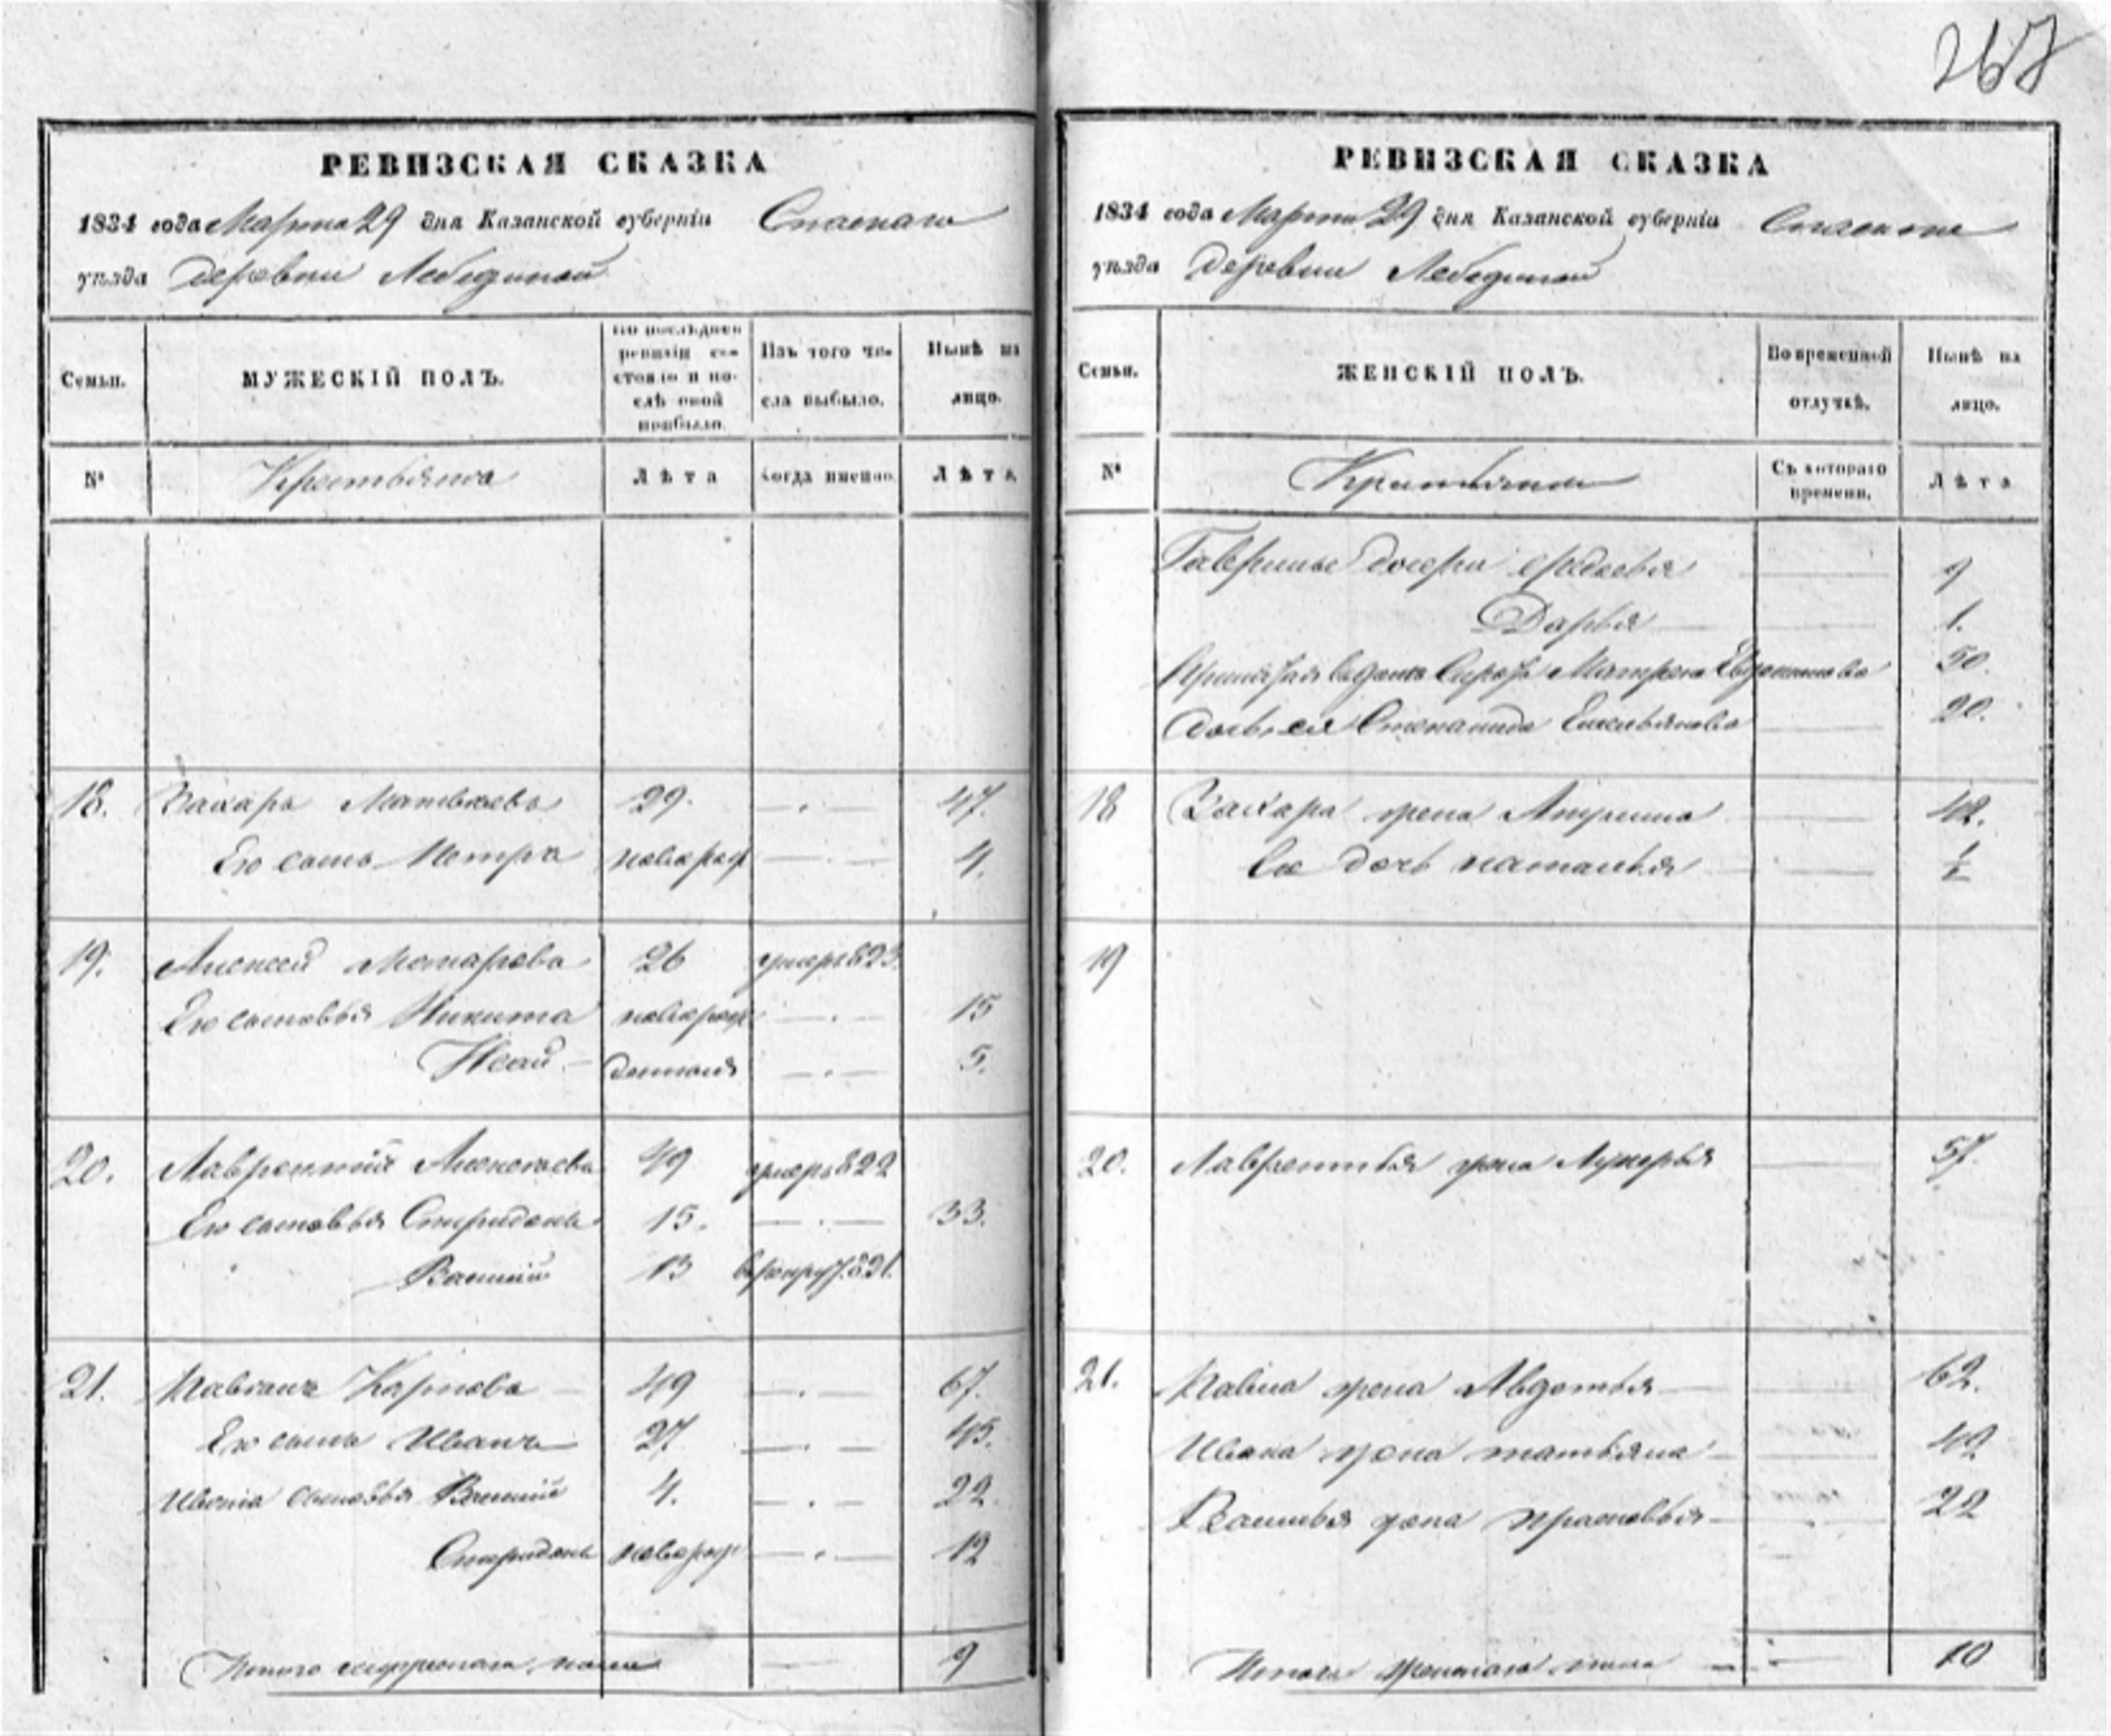 267
РЕВИЗСКАЯ СКАЗКА
1834 года Марта 29 дня Казанской губерніи Спаскаго
уѣзда деревни Лебединой
Семьи.
МУЖЕСКІЙ ПОЛЪ.
По послѣдней ревизіи состояло и послѣ оной прибыло.
Изъ того числа выбыло.
Нынѣ на лицо.
№
Крестьяна
Лѣта
Когда именно.
Лѣта.
18. Захаръ Матвѣевъ 29. 47.
Его сынъ Петръ новорож 4.
19. Алексей Макаровъ 26 умеръ 823.
Его сыновья Никита новорож 15
Исай денныя 5.
20. Лаврентій Алексѣевъ 49 умеръ 822
Его сыновья Спиридонъ 15. 33.
Василій 13 821.
21. Карповъ 49 67.
Его сынъ Иванъ 27. 45.
Ивана сыновья Василій 4. 22.
Спиридонъ новорож 12
Итого мужескаго пола 9
РЕВИЗСКАЯ СКАЗКА
1834 года Марта 29 дня Казанской губерніи Спаскаго
уѣзда деревни Лебединой
Семьи.
ЖЕНСКІЙ ПОЛЪ.
Во временной отлучкѣ.
Нынѣ на лицо.
№
Съ котораго времени.
Лѣта
Гаврилы дочери 9
Дарья 1.
Матрена Евдокимова 50.
дочь ея Степанида Емельянова 20.
18 Захара жена Акулина 42.
Ея дочь наталья ½
19
20. Лаврентья жена Лукерья 57.
21. Павла жена Авдотья 62.
Ивана жена татьяна 42
Василья жена прасковья 22
Итого женскаго пола 10